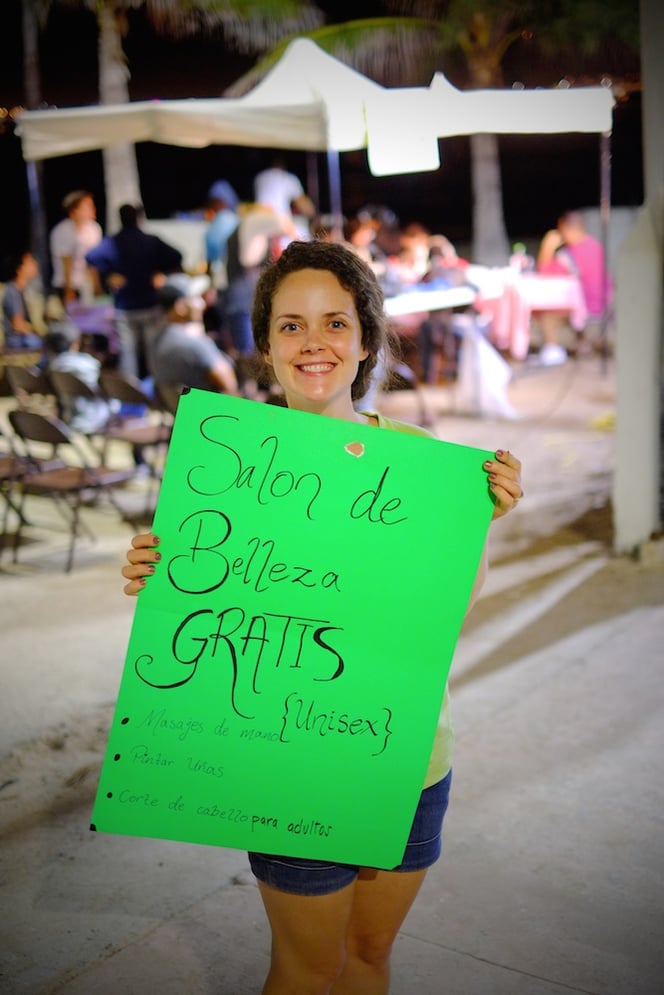 Salon de
Belleza
GRATIS
{Unisex}
• Masajes de mano
• Pintar uñas
• Corte de cabello para adultos